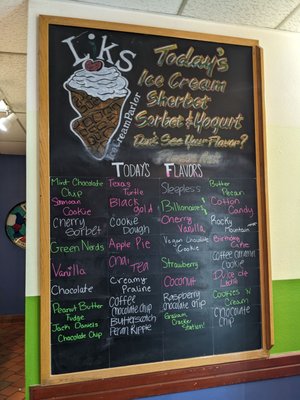 LiKS
Ice Cream Parlor
Today's
Ice Cream
Sherbet
Sorbet & Yogurt
Don't See Your Flavor?
TODAY'S FLAVORS
Mint Chocolate
Chip
Samoan
Cookie
Cherry
Sorbet
Green Nerds
Vanilla
Chocolate
Peanut Butter
Fudge
Jack Daniels
Chocolate Chip
Texas
Turtle
Black
gold
Cookie
Dough
Apple Pie
Chai
Tea
Creamy
Praline
Coffee
chocolate chip
Butterscotch
Sleepless
Billionaires
Cherry
Vanilla
Vegan Chocolate
Cookie
Strawberry
Coconut
Raspberry
chocolate chip
Graham
Cracker
Butter
Pecan
Cotton
Candy
Rocky
Mountain
Birthday
Cake
Coffee Caramel
Cookie
Dulce de
Leche
Cookies 'N
Cream
Chocolate
Chip